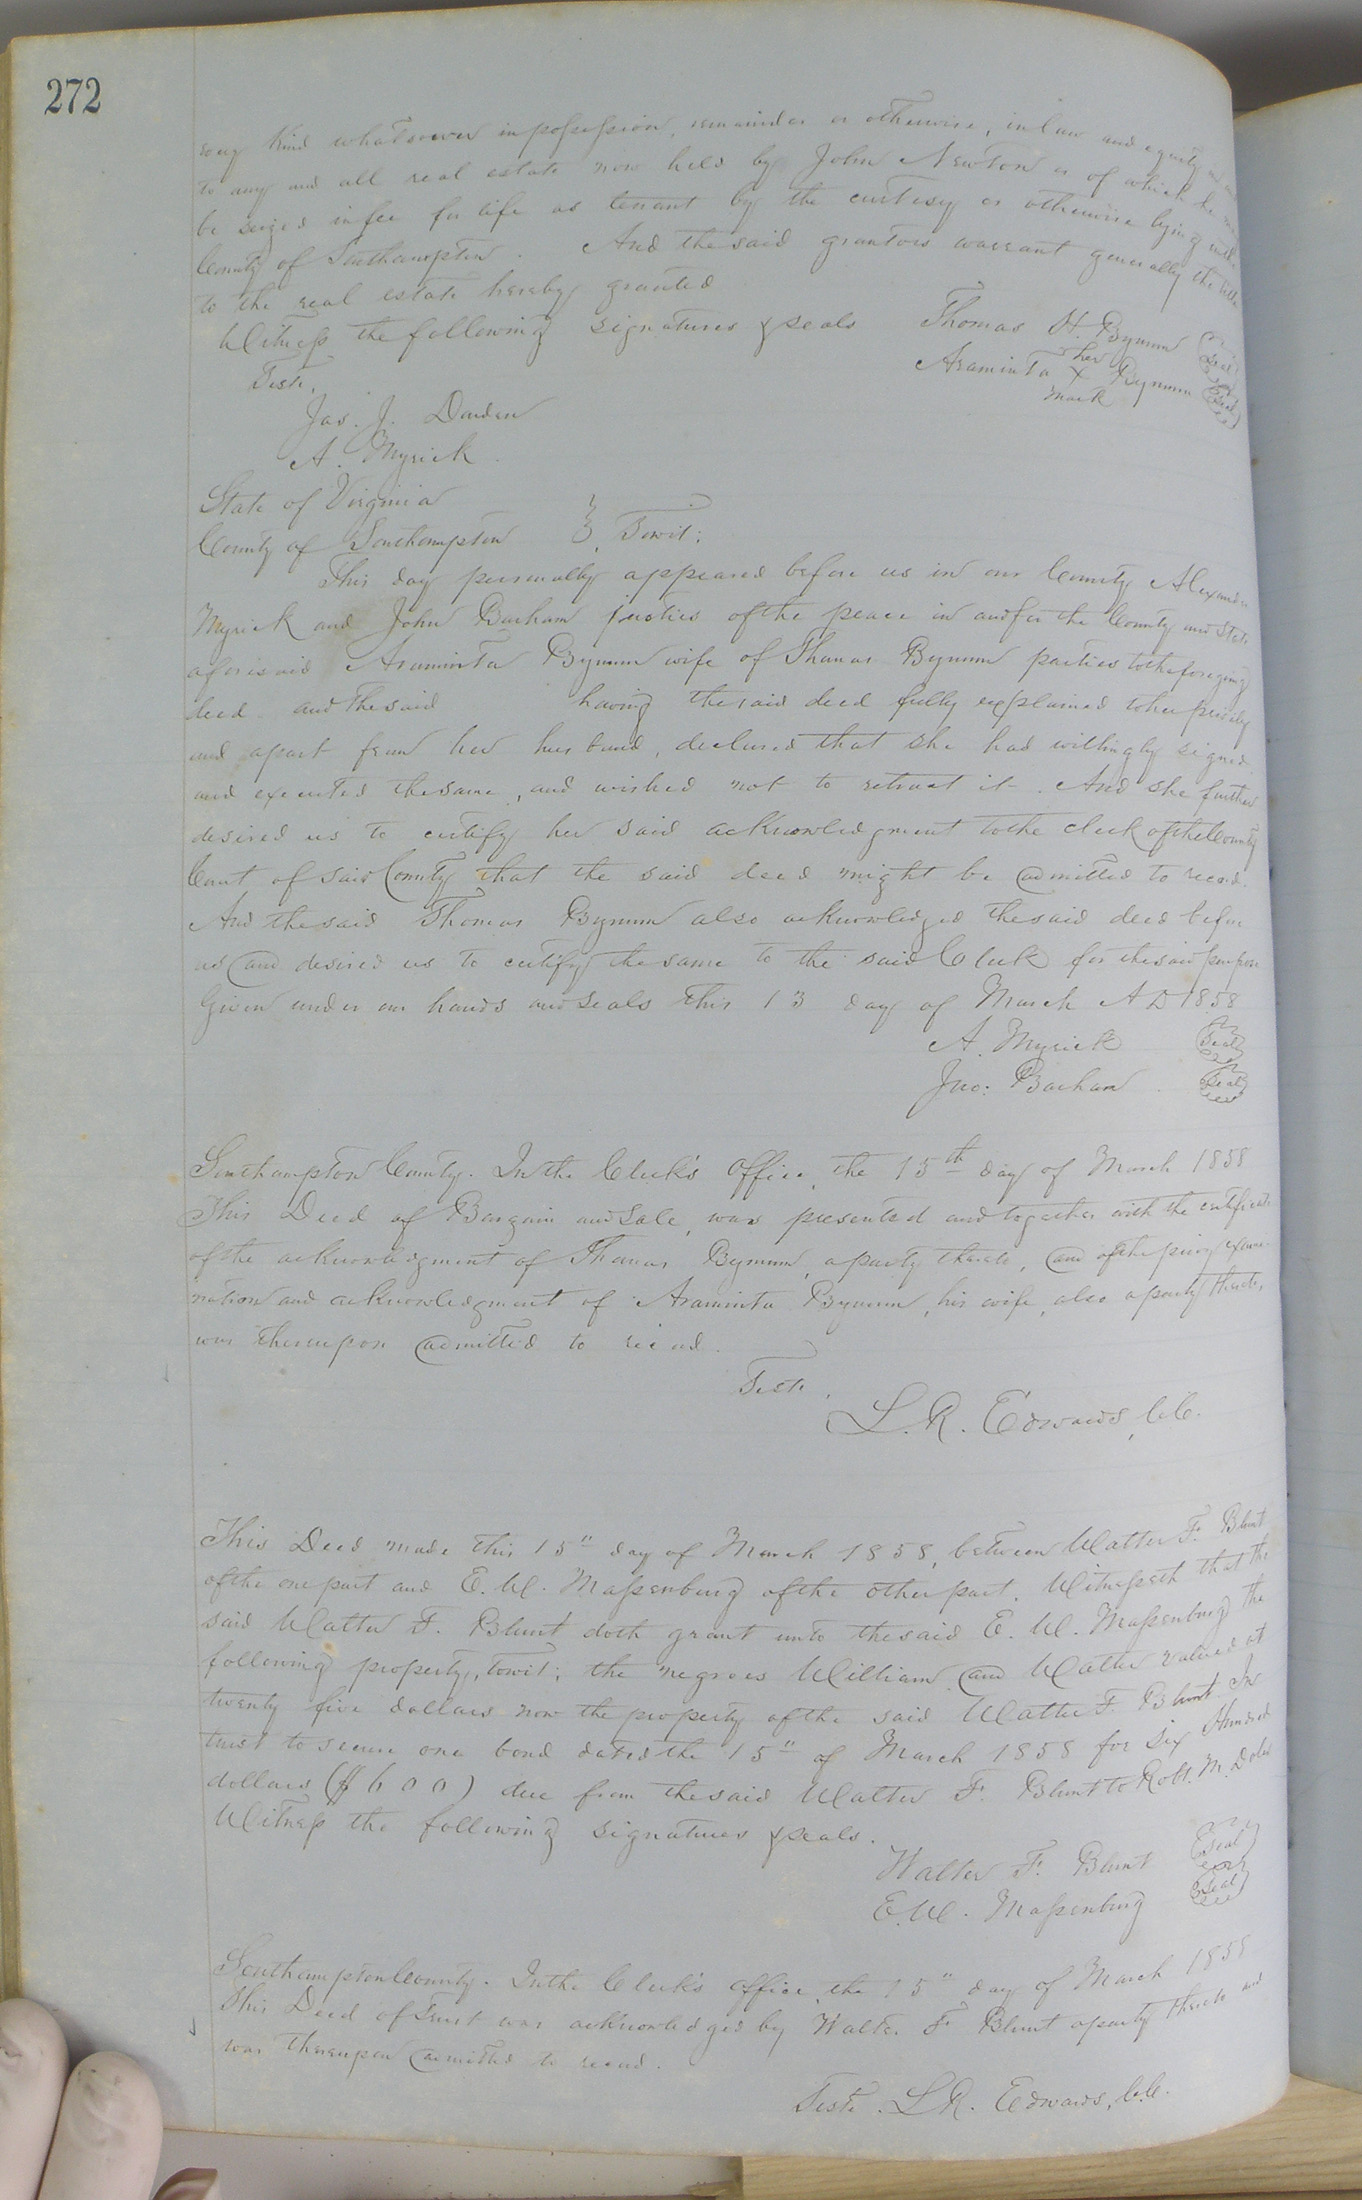 272
any kind whatsoever in possession, remainder or otherwise, in law and equity
to any and all real estate now held by John Newton or of which he may
be seized in fee for life as tenant by the curtesy or otherwise lying in the
County of Southampton. And the said grantors warrant generally the title
to the real estate hereby granted
Witness the following signatures & seals Thomas H. Bynum Seal
Teste, Araminta her x mark Bynum Seal
Jas. J. Darden
A. Myrick.
State of Virginia
County of Southampton } Towit:
This day personally appeared before us in our County Alexander
Myrick and John Barham justies of the peace in and for the County and State
aforesaid Araminta Bynum wife of Thomas Bynum parties to the foregoing
deed and the said having the said deed fully explained to her privily
and apart from her husband, declared that she had willingly signed
and executed the same, and wished not to retract it. And she further
desired us to certify her said acknowledgment to the clerk of the County
Court of said County that the said deed might be admitted to record.
And the said Thomas Bynum also acknowledged the said deed before
us and desired us to certify the same to the said Clerk for the said purpose
Given under our hands and seals this 13 day of March AD 1858
A. Myrick Seal
Jno: Barham Seal
Southampton County. In the Clerk's Office, the 15th day of March 1858
This Deed of Bargain and Sale, was presented and together with the certificate
of the acknowledgment of Thomas Bynum, a party thereto, and of the privy exami-
nation and acknowledgment of Araminta Bynum, his wife, also a party thereto,
was thereupon admitted to record.
Teste,
L. R. Edwards, C.C.
This Deed made this 15" day of March 1858, between Walter F. Blunt
of the one part and E. W. Massenburg of the other part, Witnesseth that the
said Walter F. Blunt doth grant unto the said E. W. Massenburg the
following property, towit; the negroes William and Walter valued at
twenty five dollars now the property of the said Walter F. Blunt In
trust to secure one bond dated the 15" of March 1858 for Six Hundred
dollars ($600) due from the said Walter F. Blunt to Robt. M. Doles
Witness the following signatures & seals.
Walter F. Blunt Seal
E. W. Massenburg Seal
Southampton County. In the Clerk's office, the 15" day of March 1858
This Deed of Trust was acknowledged by Walter F Blunt a party thereto and
was thereupon admitted to record.
Teste. L R. Edwards, C.C.